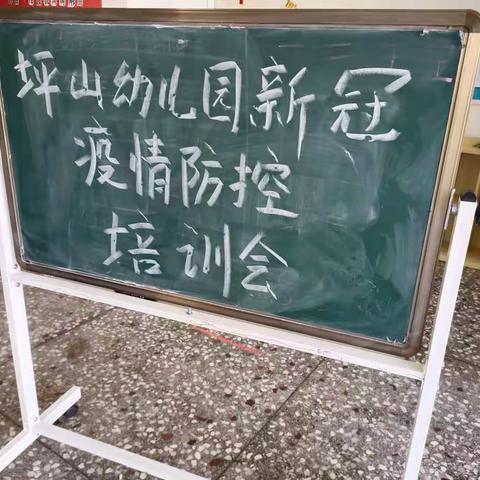 坪山幼儿园新冠
疫情防控
培训会